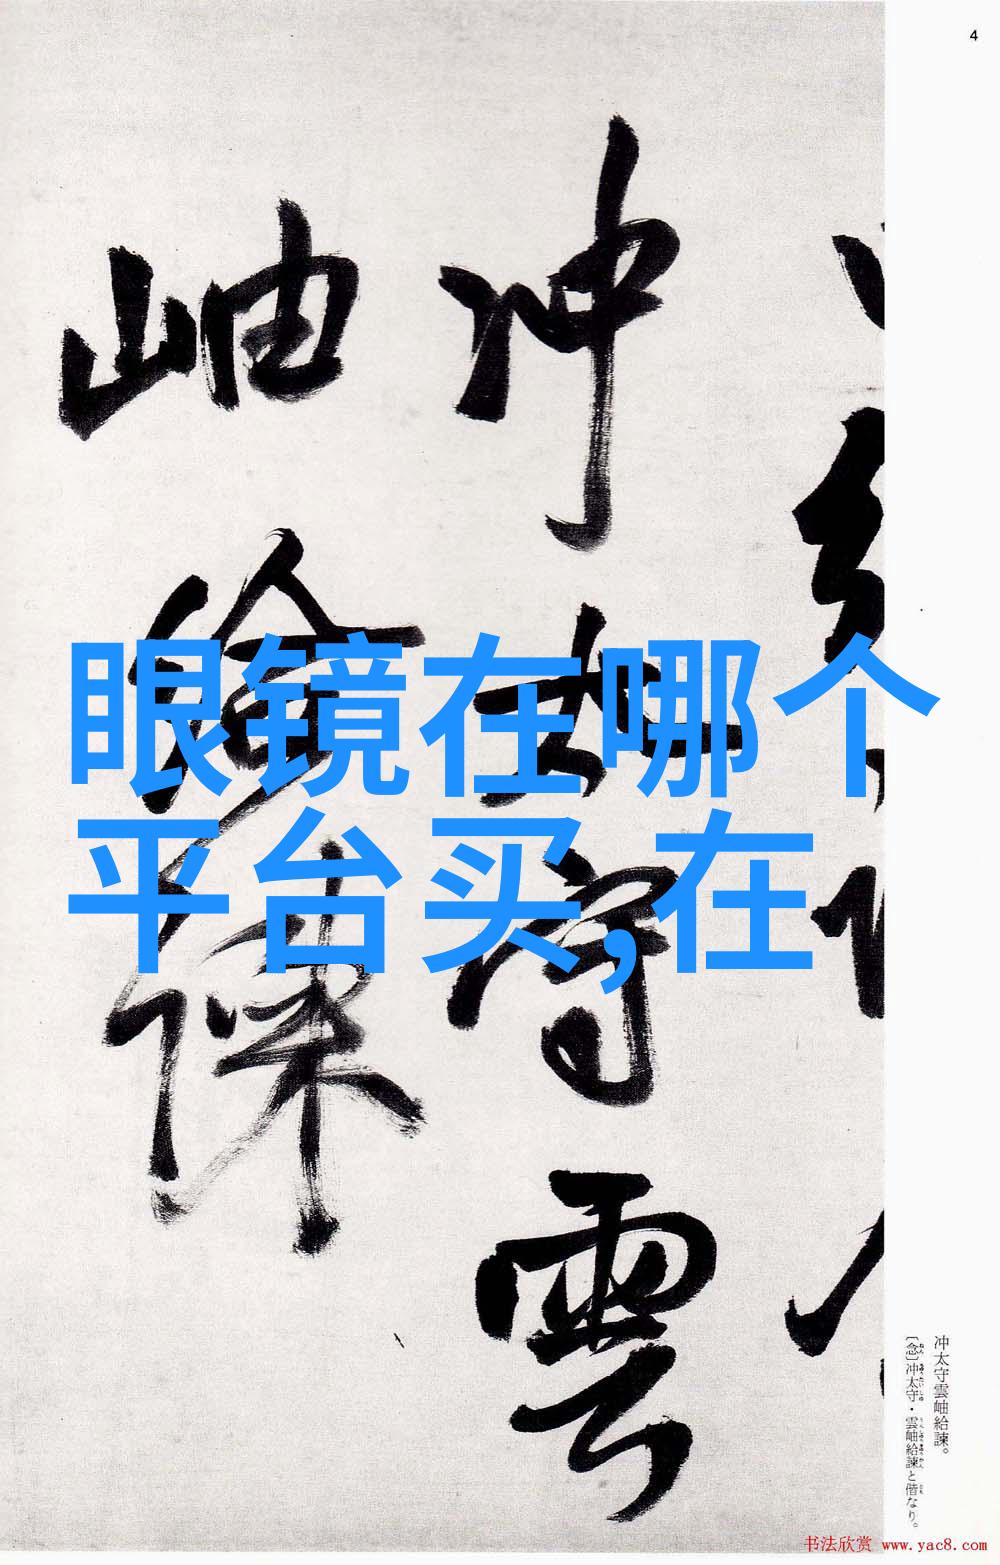 4
冲太守雲
岫給諫
眼镜在哪个
平台买,在
冲太守雲岫給諫。
〔念〕冲太守・雲岫給諫と偕なり。
书法欣赏 www.yac8.com